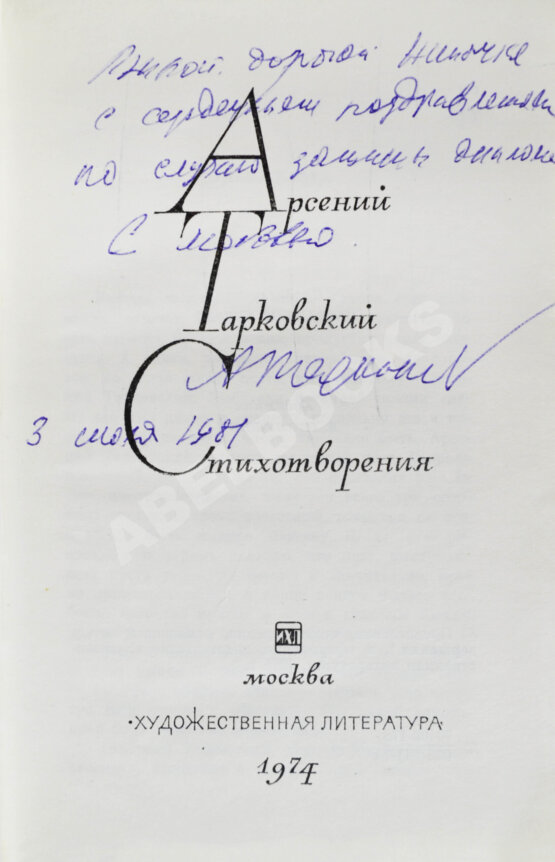 дорогой Ниночке
с сердечным поздравлением
по случаю защиты диплома
Арсений
С любовью
Тарковский
А Тарковский
3 июня 1981
Стихотворения
ABELBOOKS
ИХЛ
москва
·ХУДОЖЕСТВЕННАЯ ЛИТЕРАТУРА·
1974